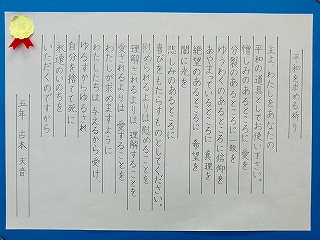 平和を求める祈り
主よ わたしをあなたの
平和の道具としてお使いください。
憎しみのあるところに 愛を
分裂のあるところに 一致を
ゆうわくのあるところに 信仰を
あやまっているところに 真理を
絶望のあるところに 希望を
闇に光を
悲しみのあるところに
喜びをもたらすものとしてください。
慰められるよりは 慰めることを
理解されるよりは 理解することを
愛されるよりは 愛することを
わたしが求めますように
わたしたちは 与えるから受け
ゆるすからゆるされ
自分を捨てて死に
永遠のいのちを
いただくのですから
五年 古本 天音